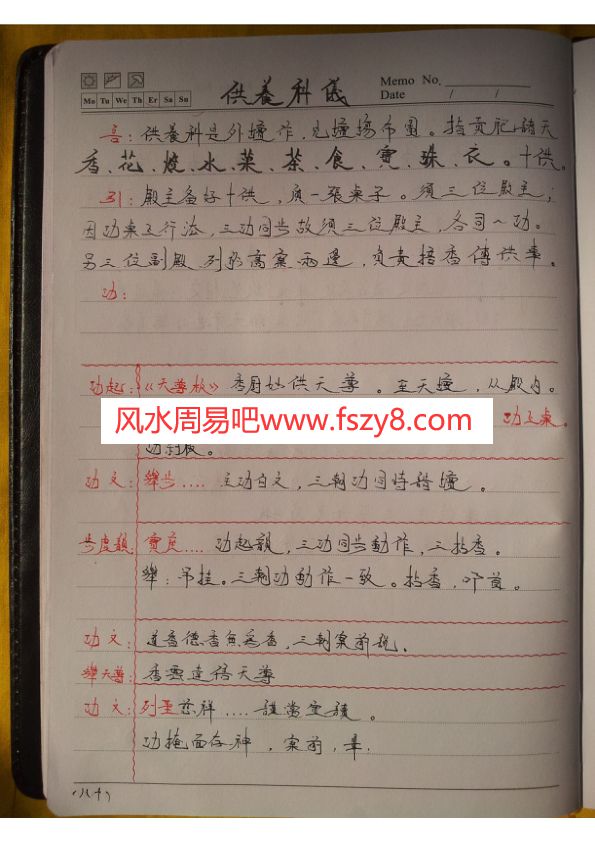 Memo No.
Date / /
Mo Tu We Th Er Sa Su
供養科儀
言：供養科是外壇作，見壇場布圖。指貢祀諸天
香、花、燈、水、菓、茶、食、寶、珠、衣。十供。
引：殿主备好十供，須一張桌子。須三位殿主；
因功桌上行法，三功同步故須三位殿主，各司一功。
另三位副殿列於高案兩邊，負責搭香傳供畢。
功：
功起：《天尊板》香厨妙供天尊。至天壇，从殿内。
功上桌。
风水周易吧www.fszy8.com
功文：舉步.... 主功白文，三朝功同時踏壇。
步虛韻 寶座.... 功起韻，三功同步動作，三拈香。
舉：吊挂。三朝功動作一致。拈香，叩首。
功文：道香德香無為香，三朝案前説。
舉天尊：香雲達信天尊
功文：列聖慈祥....
功掩面存神，案前，畢。